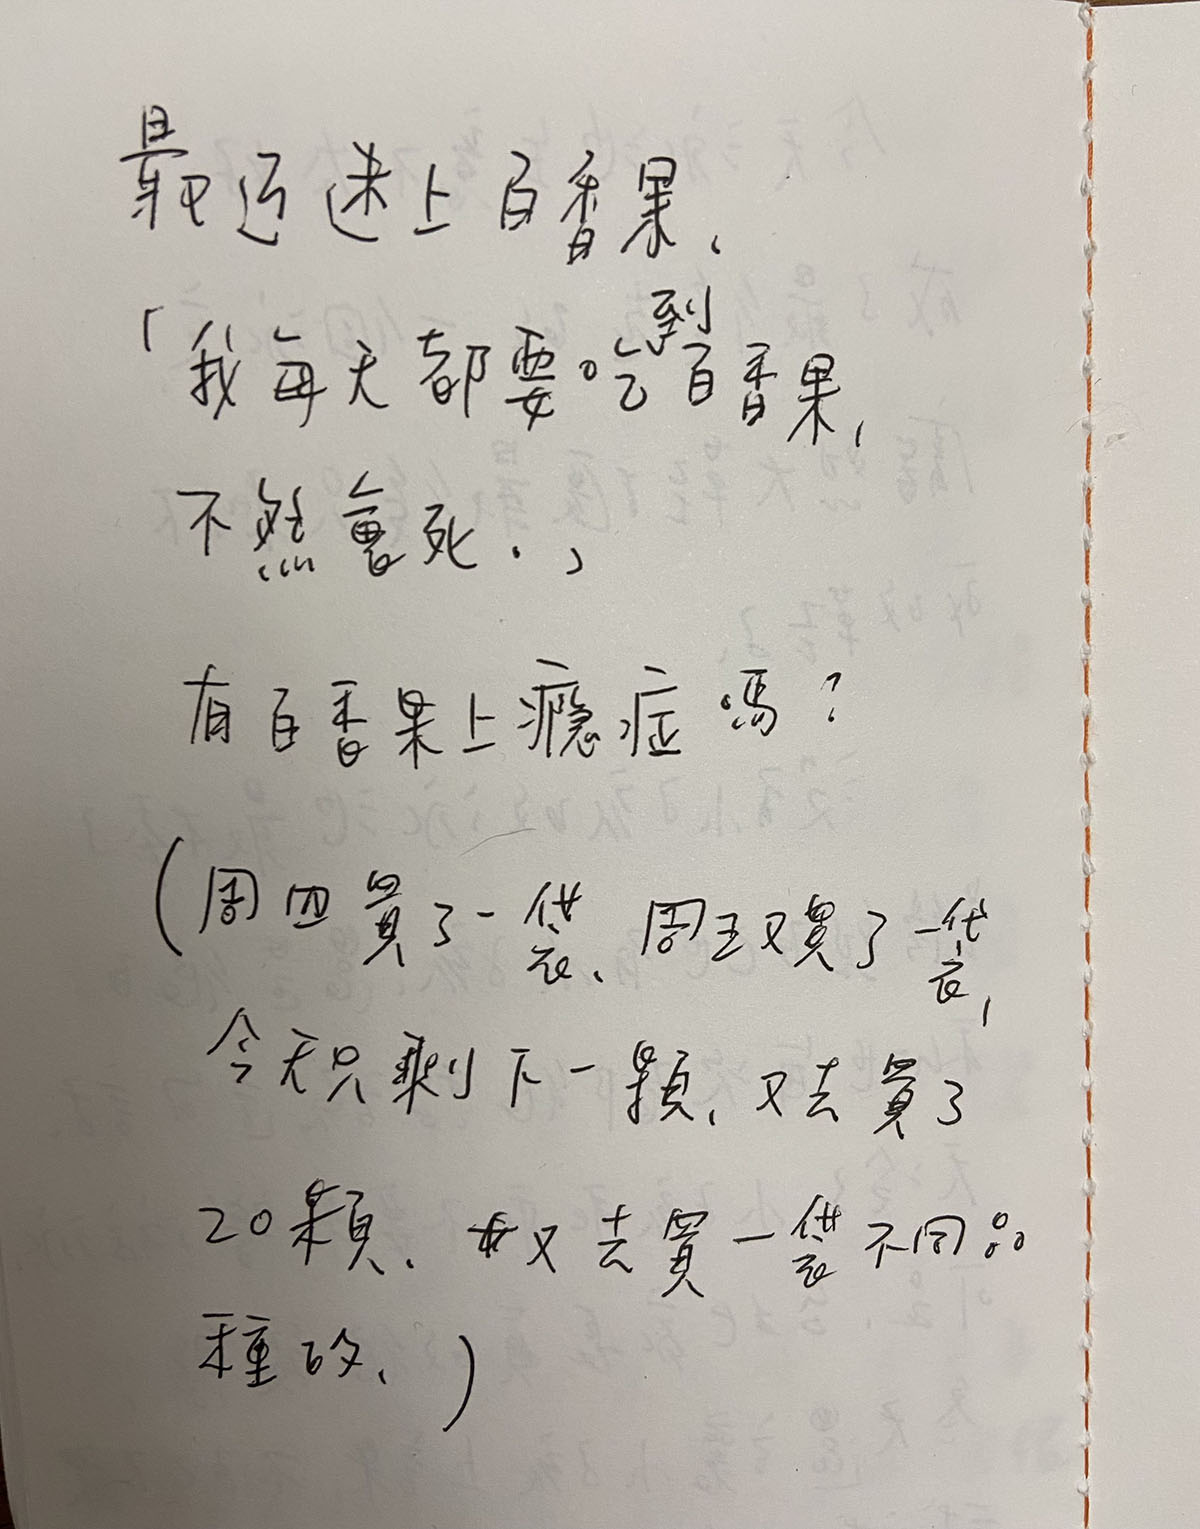 最近迷上百香果、
「我每天都要吃到百香果,
不然會死.」
有百香果上癮症嗎?
(周四買了一袋、周五又買了一袋,
今天只剩下一顆、又去買了
20顆、又去買一袋不同品
種的、)